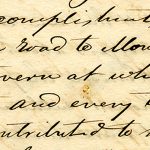 complishment
road to Mou
vern at wh
and every
ntributed to